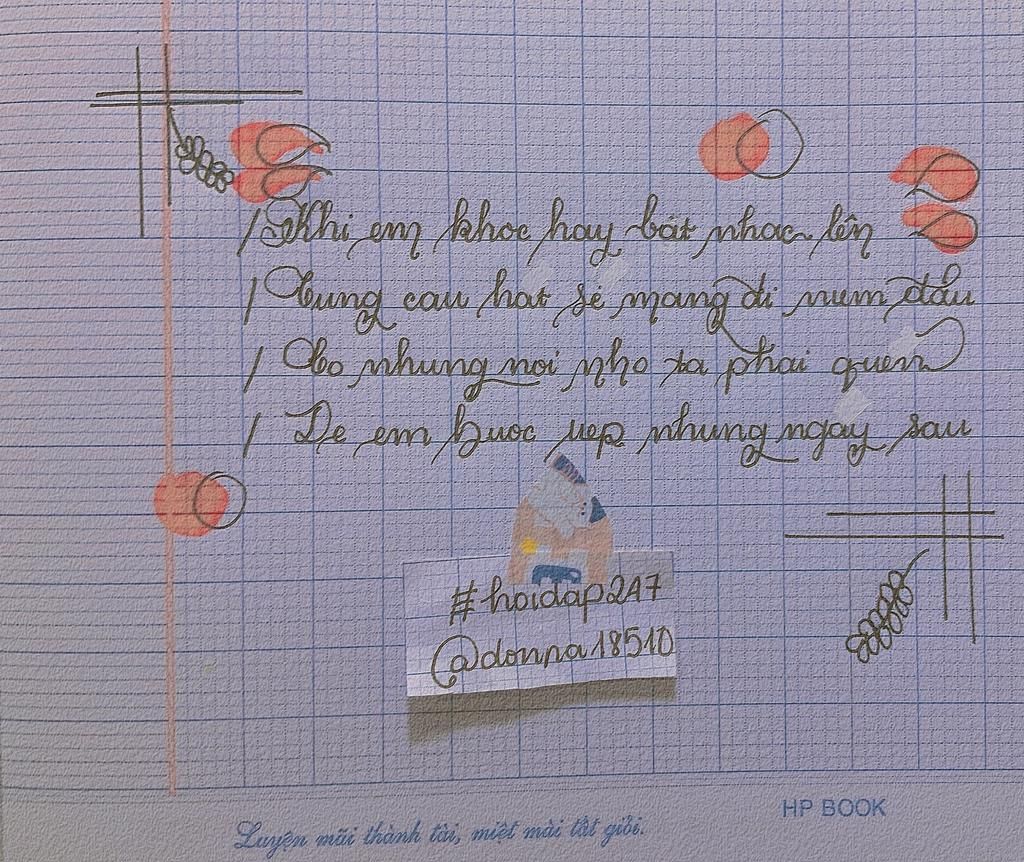 / Khi em khoc hay bát nhac lên
/ Cung cau hat sẻ mang đi num đau
/ Co nhung noi nho ta phai quen
/ De em buoc tiep nhung ngay sau
#hoidap247
@donna18510
HP BOOK
Luyện mãi thành tài, miệt mài tất giỏi.